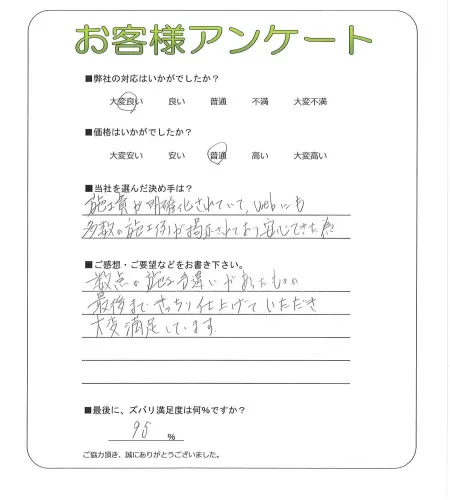 お客様アンケート
■弊社の対応はいかがでしたか?
大変良い 良い 普通 不満 大変不満
■価格はいかがでしたか?
大変安い 安い 普通 高い 大変高い
■当社を選んだ決め手は?
施工費が明確化されていて、webにも
多数の施工例が掲示されており安心できた為
■ご感想・ご要望などをお書き下さい。
数点の施工違いがあったものの
最後まできっちり仕上げていただき
大変満足しています
■最後に、ズバリ満足度は何%ですか?
95 %
ご協力頂き、誠にありがとうございました。